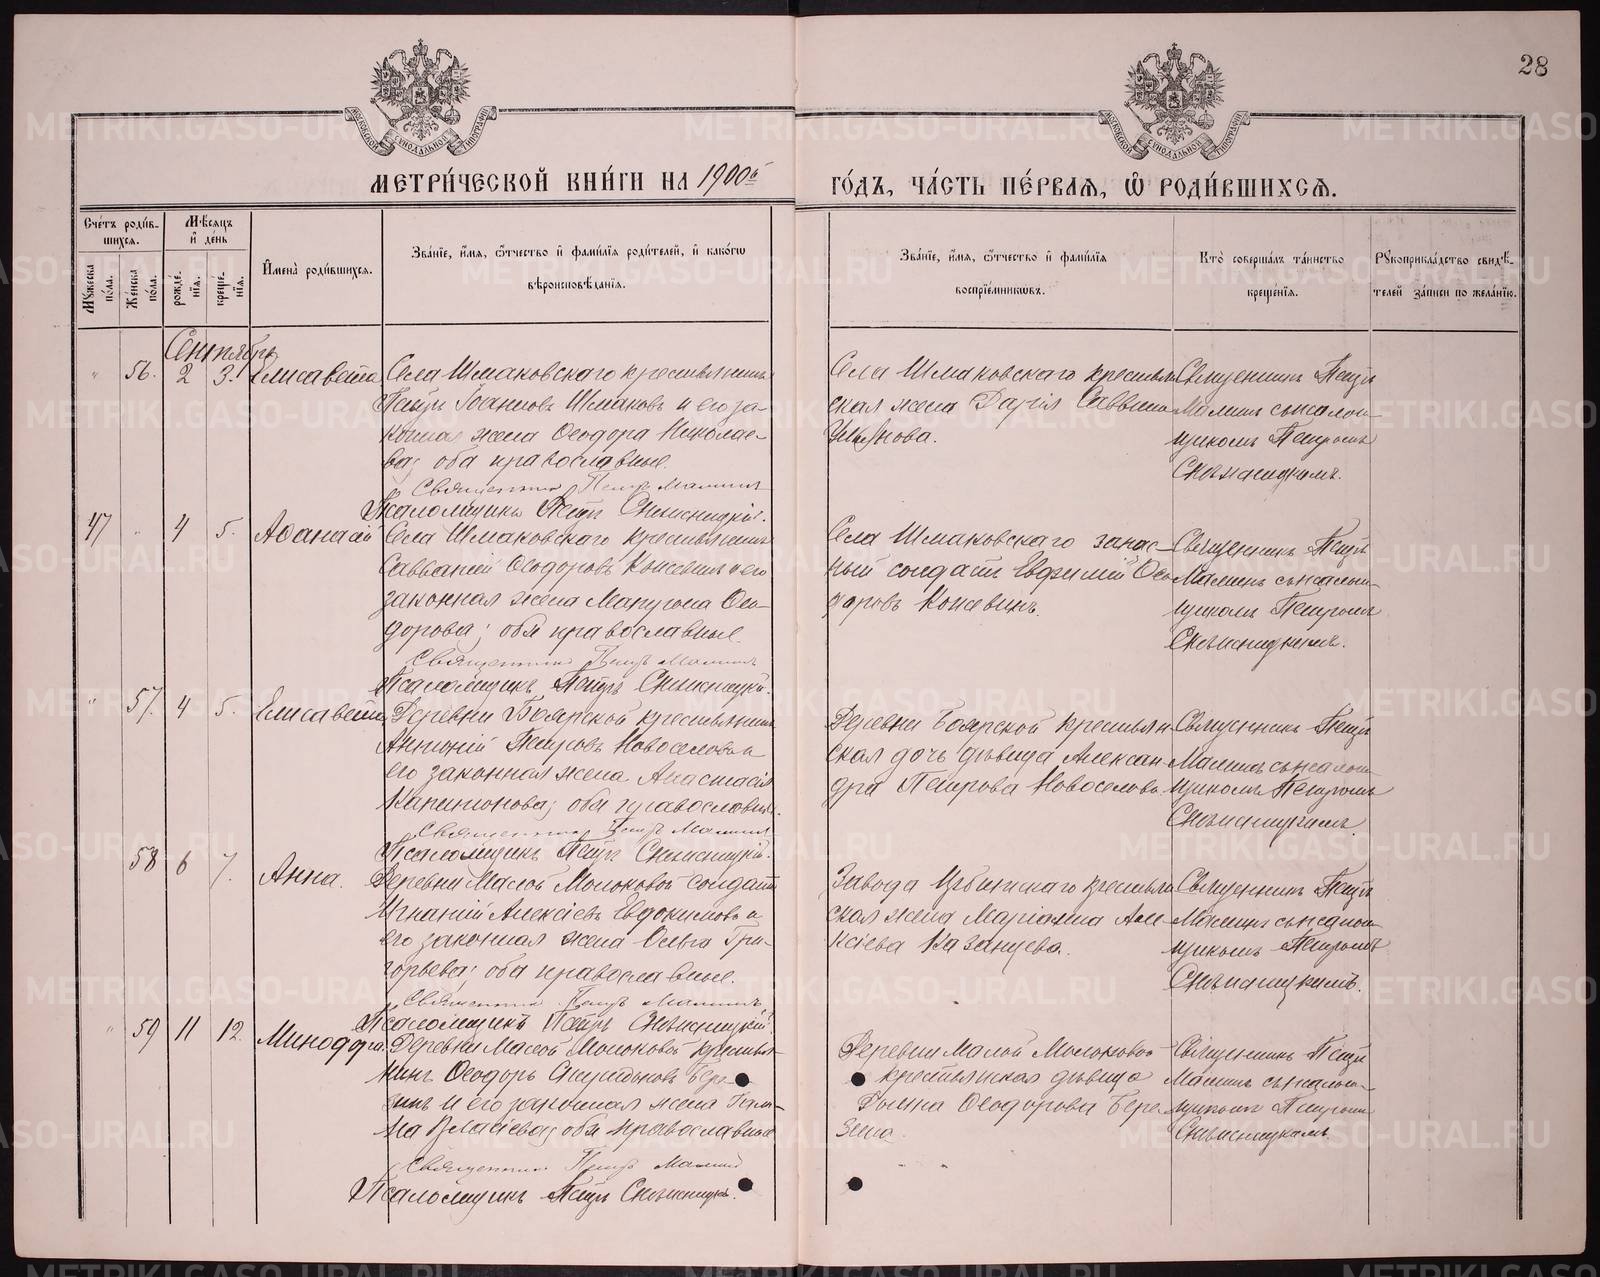 28
МЕТРИ́ЧЕСКОЙ КНИ́ГИ НА 1900й
ГО́ДЪ, ЧА́СТЬ ПЕ́РВАѦ, Ѡ҆ РОДИ́ВШИХСѦ.
Сче́тъ роди́в-
шихсѧ.
Мѣ́сѧцъ
и҆ де́нь
Мꙋ́жеска по́ла.
Же́нска по́ла.
рожде́-
нїѧ.
креще́-
нїѧ.
И҆мена̀ роди́вшихсѧ.
Зва́нїе, и҆́мѧ, ѻ҆́тчество и҆ фами́лїѧ роди́телей, и҆ како́гѡ
вѣроисповѣ́данїѧ.
Зва́нїе, и҆́мѧ, ѻ҆́тчество и҆ фами́лїѧ
воспрїе́мникѡвъ.
Кто̀ соверша́лъ та́инство
креще́нїѧ.
Рꙋкоприкла́дство свидѣ́-
телей за́писи по жела́нїю.
Сентябрь
" 56. 2 3. Елисавета
Села Шмаковскаго крестьянинъ
Петръ Іоанновъ Шмаковъ и его за-
конная жена Ѳеодора Николае-
ва; оба православные.
Священникъ Петръ Маминъ
Псаломщикъ Петръ Снѣжницкій.
Села Шмаковскаго крестьян
ская жена Дарія Саввина
Священникъ Петръ
Маминъ съ псалом-
щикомъ Петромъ
47 " 4 5. Аѳанасій
Села Шмаковскаго крестьянинъ
Савватій Ѳеодоровъ Кожевинъ и его
законная жена Матрона Ѳео-
дорова; оба православные.
Священникъ Петръ Маминъ
Псаломщикъ Петръ
Села Шмаковскаго запас-
ный солдатъ Евфимій Ѳео
доровъ Кожевинъ.
Священникъ Петръ
Маминъ съ псалом-
щикомъ Петромъ
" 57. 4 5. Елисавета
Деревни Боярской крестьянинъ
Антоній Петровъ Новоселовъ и
его законная жена Анастасія
Капитонова; оба православные.
Священникъ Петръ Маминъ
Псаломщикъ Петръ
Деревни Боярской крестьян-
ская дочь дѣвица Алексан-
дра Петрова Новоселова.
Священникъ Петръ
Маминъ съ псалом-
щикомъ Петромъ
58 6 7. Анна.
Деревни Малой Молоковой солдатъ
Игнатій Алексіевъ Евдокимовъ и
его законная жена Ольга Гри-
горьева; оба православные.
Священникъ Петръ Маминъ
Псаломщикъ Петръ
Завода Ирбитскаго крестьян
ская жена Маріамна Але-
ксіева Казанцева.
Священникъ Петръ
Маминъ съ псалом-
щикомъ Петромъ
" 59 11 12. Минодора.
Деревни Малой Молоковой крестья-
нинъ Ѳеодоръ Бере-
зинъ и его законная жена Гали-
на Власіева; оба православные
Священникъ Петръ Маминъ
Псаломщикъ Петръ
Деревни Малой Молоковой
крестьянская дѣвица
Ѳеодорова Бере-
зина.
Священникъ Петръ
Маминъ съ псалом-
щикомъ Петромъ
METRIKI.GASO-URAL.RU